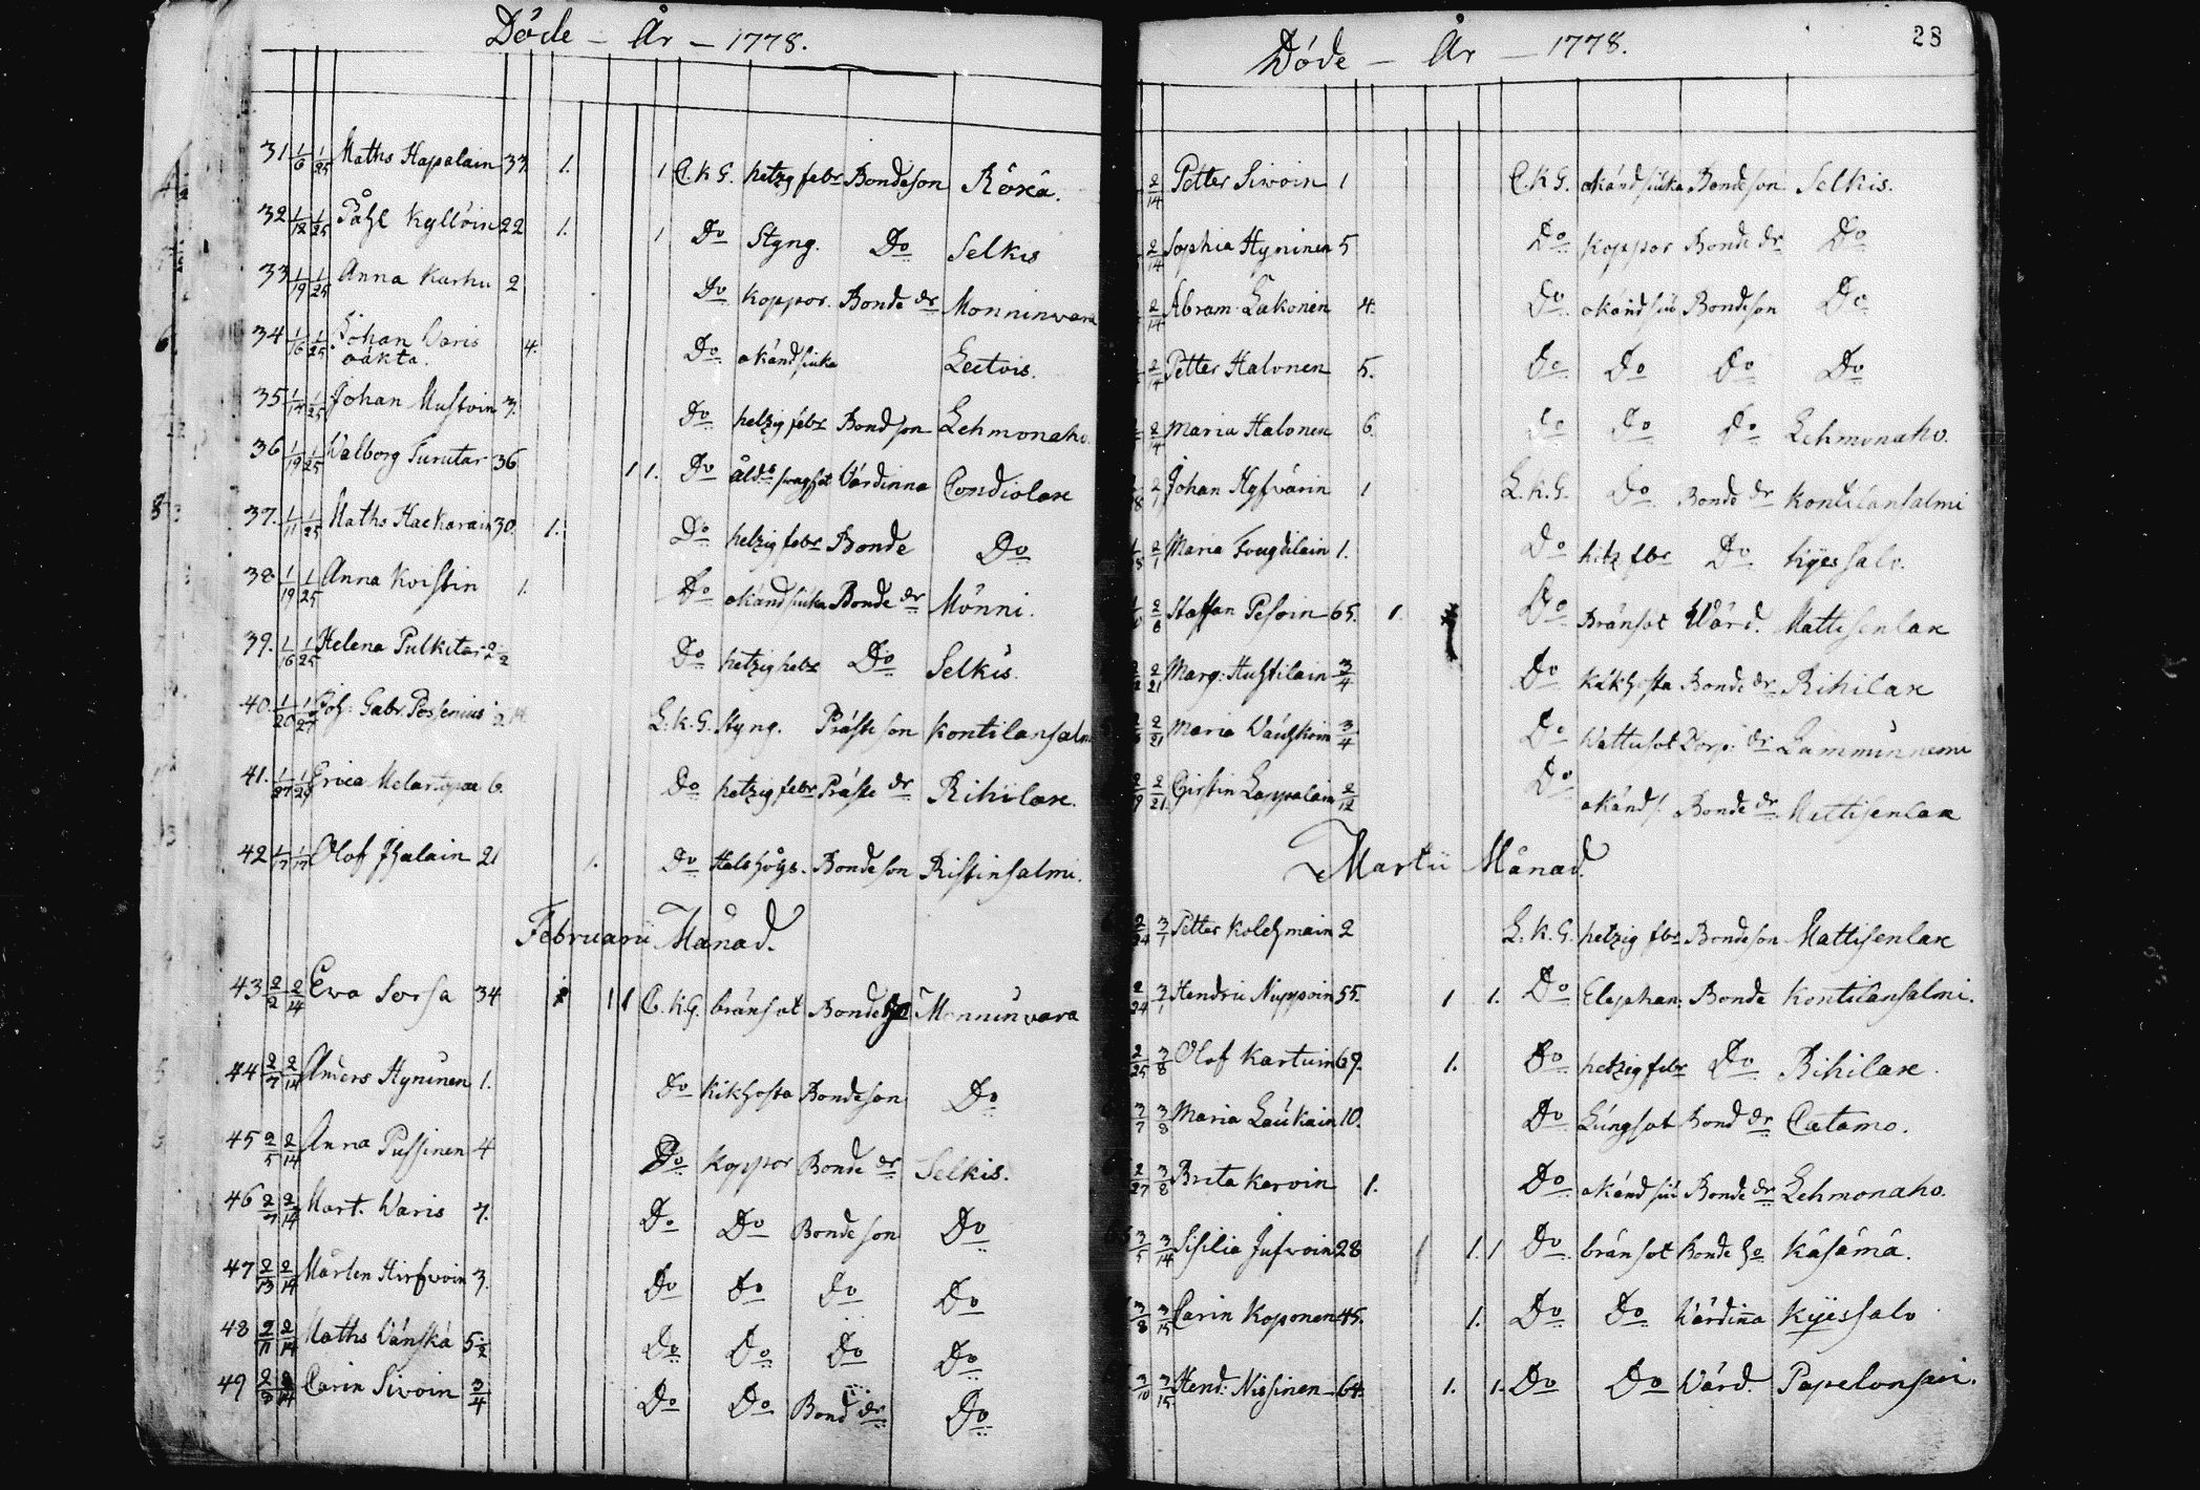 Döde – År – 1778.
31 1/6 1/25 Maths Hapalain 33. 1. 1 C.K.G. hetzg febr Bondeson Röxä.
32 1/12 1/25 Påhl Kyllöin 22 1. 1 Do Styng. Do Selkis
33 1/19 1/25 Anna Karhu 2 Do Koppor. Bonde dr Monninwara
34 1/16 1/25 Johan Waris 4. Do okänd siuka Lectois.
oäkta.
35 1/14 1/25 Johan Mustoin 3. Do hetzig febr Bondson Lehmonaho.
36 1/19 1/25 Walborg Turutar 36 1 1. Do Wärdinna Condiolax
37. 1/11 1/25 Maths Hackarain 30. 1. Do hetzig febr Bonde Do
38 1/19 1/25 Anna Koistin 1. Do okänd siuka Bonde dr Mönni.
39. 1/16 1/25 Helena Pulkitar 2 1/2 Do hetzig febr Do Selkis.
40. 1/20 1/27 Joh: Gabr. Possenius L.K.G. Styng. Präste son Kontilansalmi
41. 1/27 1/29 Erica 6. Do hetzig febr Präste dr Rihilax.
42 1/17 1/17 Olof Ihalain 21 1. Do Halshögs. Bondeson Ristinsalmi.
Februarii Månad.
43 2/2 2/14 Eva Sorsa 34 1 1 C.K.G. bränsot Bonde Monninvara
44 2/7 2/14 Anders Hyninen 1. Do Kikhosta Bondeson Do
45 2/5 2/14 Anna Pussinen 4 Do Koppor Bonde dr Selkis.
46 2/7 2/14 Mart. Waris 7. Do Do Bondeson Do
47 2/13 2/14 Mårten Hirfwoin 3. Do Do Do Do
48 2/11 2/14 Maths Wänskä 5 1/2 Do Do Do Do
49 2/14 Carin Sivoin 3/4 Do Do Bond dr Do
Döde – År – 1778. 28
2/14 Petter Sivoin 1 C.K.G. okänd siuka Bondeson Selkis.
2/14 Sophia Hyninen 5 Do Koppor Bonde dr Do
2/14 Abram Lakonen 4. Do okänd siu Bondeson Do
2/14 Petter Halonen 5. Do Do Do Do
2/14 Maria Halonen 6. Do Do Do Lehmonaho.
2/1 Johan Hyfvärin 1 L.K.G. Do Bonde dr Kontilansalmi
2/1 Maria Fougdilain 1. Do hitz fbr Do Kyessalo.
2/8 Staffan Pesoin 65. 1. Do Bränsot Wärd. Mattisenlax
2/21 Marg: Hustilain 3/4 Do Kikhosta Bonde dr Rihilax
2/21 Maria 3/4 Do Wattusot Torp: dr Lamminnemi
2/21 Christin Lappalain 2/12 Do okänd s. Bonde dr Mattisenlax
Martii Månad.
2/24 3/1 Petter Kolehmain 2 L.K.G. hetzig fbr Bondeson Mattisenlax
2/24 3/1 Hendric Nuppoin 55. 1 1. Do Elephan. Bonde Kontilansalmi.
2/25 3/8 Olof Kartuin 69. 1. Do hetzig febr Do Rihilax.
3/7 3/8 Maria Laukain 10. Do Lungsot Bond dr Catamo.
2/27 3/8 Brita Karvoin 1. Do okänd siu Bonde dr Lehmonaho.
3/5 3/14 Sisilia Jufvoin 28 1. 1 Do bränsot Bonde ho Käsämä.
3/8 3/15 Carin Koponen 45. 1. Do Do Wärdinna Kyessalo
3/10 3/15 Hend: Nissinen 64. 1. 1. Do Do Wärd.